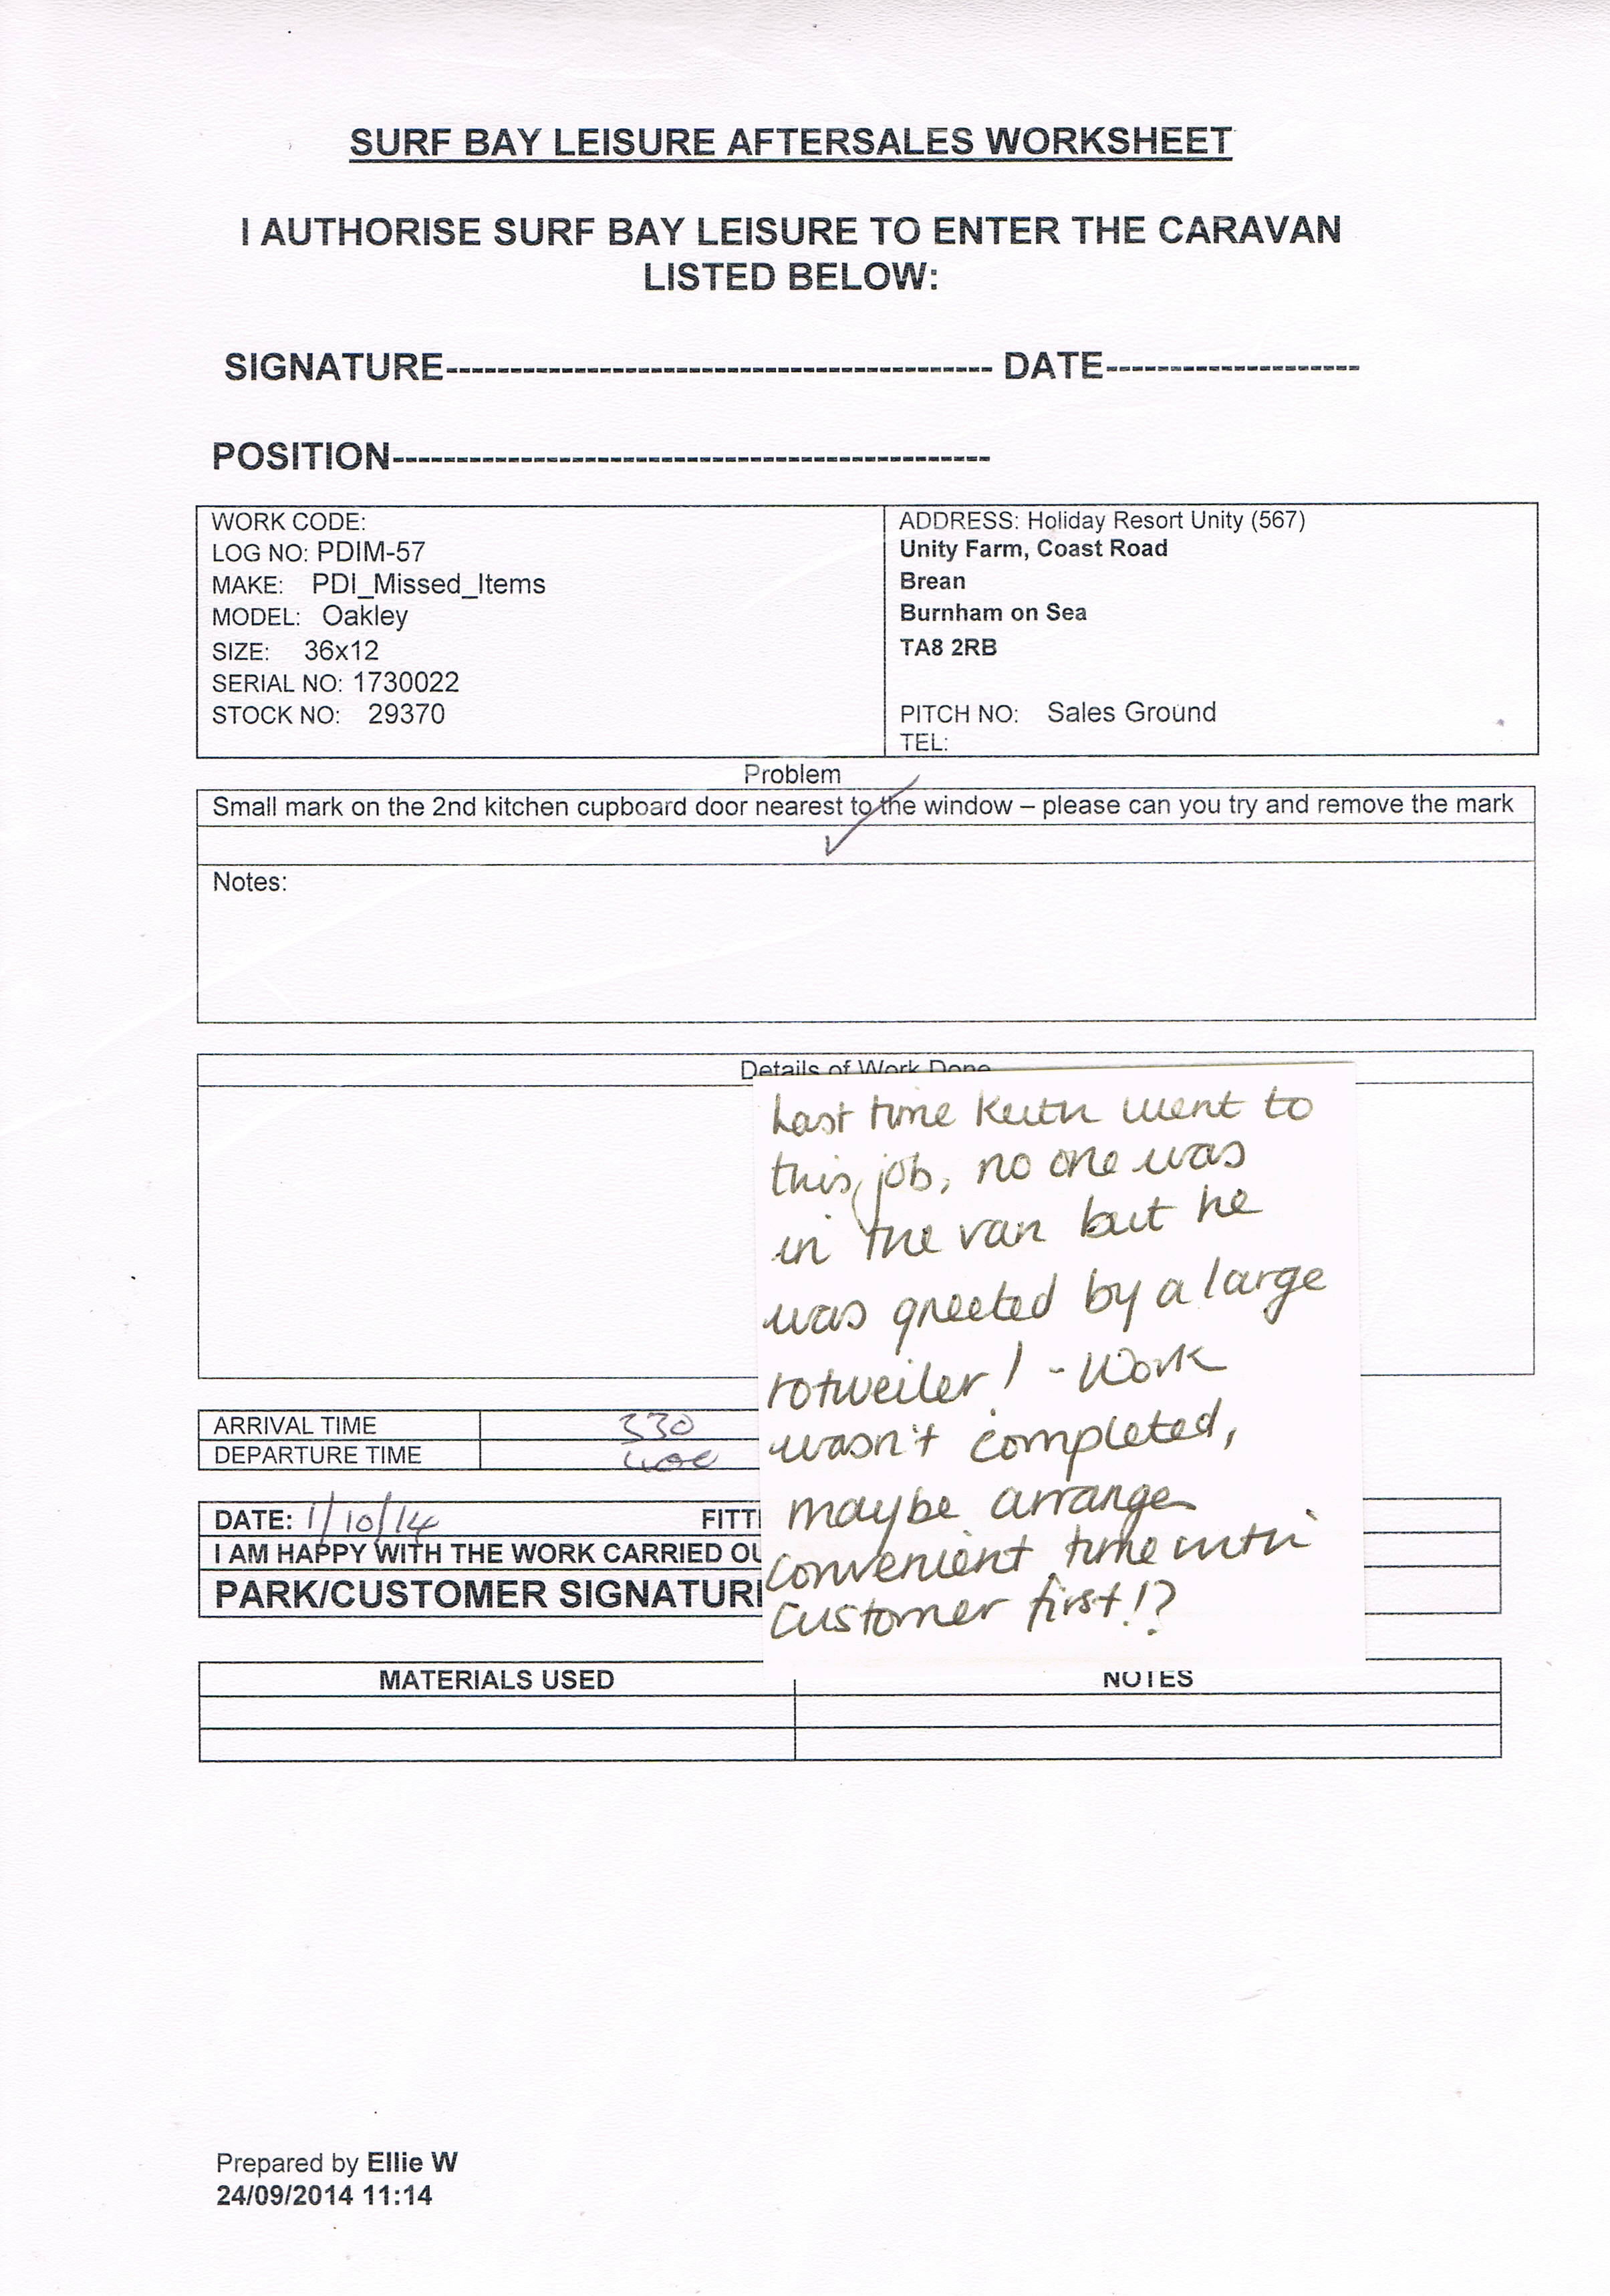 SURF BAY LEISURE AFTERSALES WORKSHEET
I AUTHORISE SURF BAY LEISURE TO ENTER THE CARAVAN
LISTED BELOW:
SIGNATURE------------------------------------------- DATE--------------------
POSITION-----------------------------------------------
WORK CODE:
LOG NO: PDIM-57
MAKE: PDI_Missed_Items
MODEL: Oakley
SIZE: 36x12
SERIAL NO: 1730022
STOCK NO: 29370
ADDRESS: Holiday Resort Unity (567)
Unity Farm, Coast Road
Brean
Burnham on Sea
TA8 2RB
PITCH NO: Sales Ground
TEL:
Problem
Small mark on the 2nd kitchen cupboard door nearest to the window – please can you try and remove the mark
Notes:
Details of Work Done
Last time Keith went to
this job, no one was
in the van but he
was greeted by a large
rotweiler! - Work
wasn't completed,
maybe arrange
convenient time with
customer first!?
ARRIVAL TIME 330
DEPARTURE TIME 400
DATE: 1/10/14 FITT
I AM HAPPY WITH THE WORK CARRIED OU
PARK/CUSTOMER SIGNATUR
MATERIALS USED NOTES
Prepared by Ellie W
24/09/2014 11:14